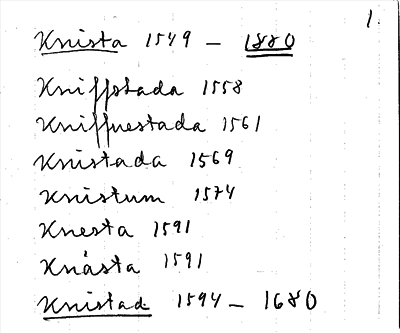 1.
Knista 1549 – 1880
Kniffstada 1558
Kniffuestada 1561
Knistada 1569
Knistum 1574
Knesta 1591
Knåsta 1591
Knistad 1594 – 1680